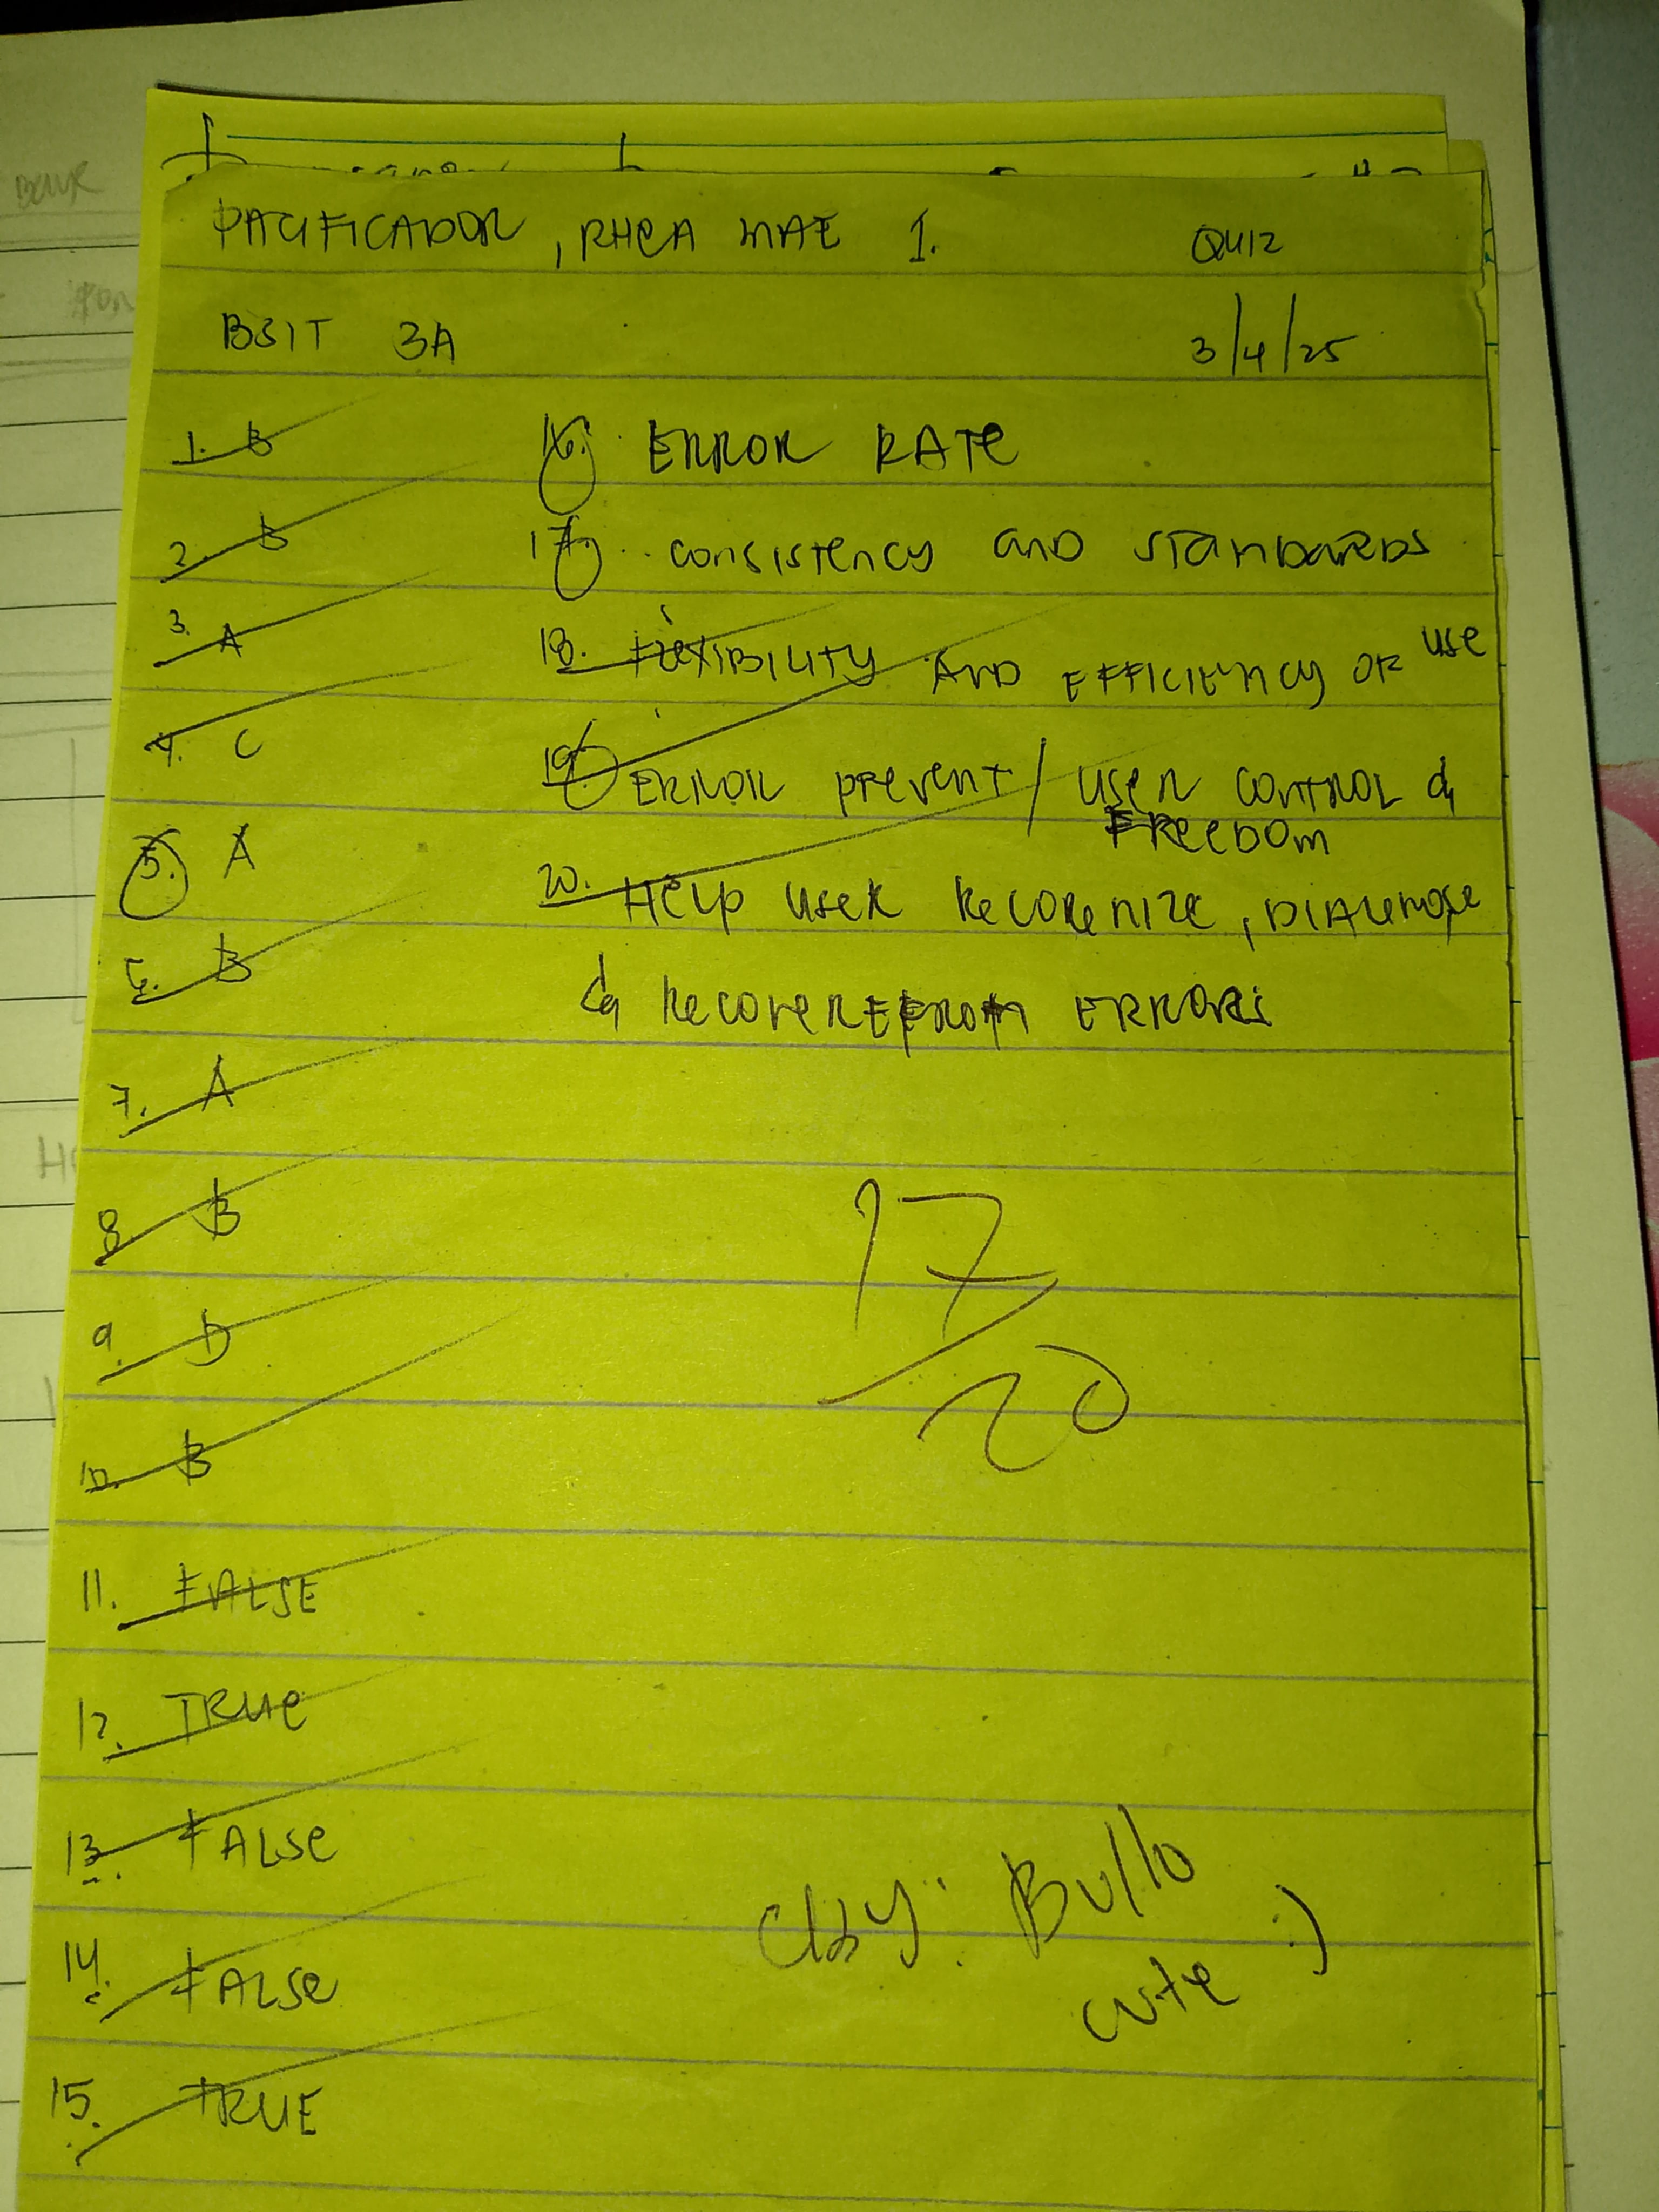 PACIFICADOR, RHEA MAE I. QUIZ
BSIT 3A 3/4/25
1. B
2. B
3. A
4. C
5. A
6. B
7. A
8. B
9. D
10. B
11. FALSE
12. TRUE
13. FALSE
14. FALSE
15. TRUE
16. ERROR RATE
17. consistency and standards
18. FLEXIBILITY AND EFFICIENCY OF use
19. ERROR prevent / user control &
FREEDOM
20. Help user Recogenize, DIAGNOSE
& RecoverE FROM ERRORS
17/20
Bullo
cute :)